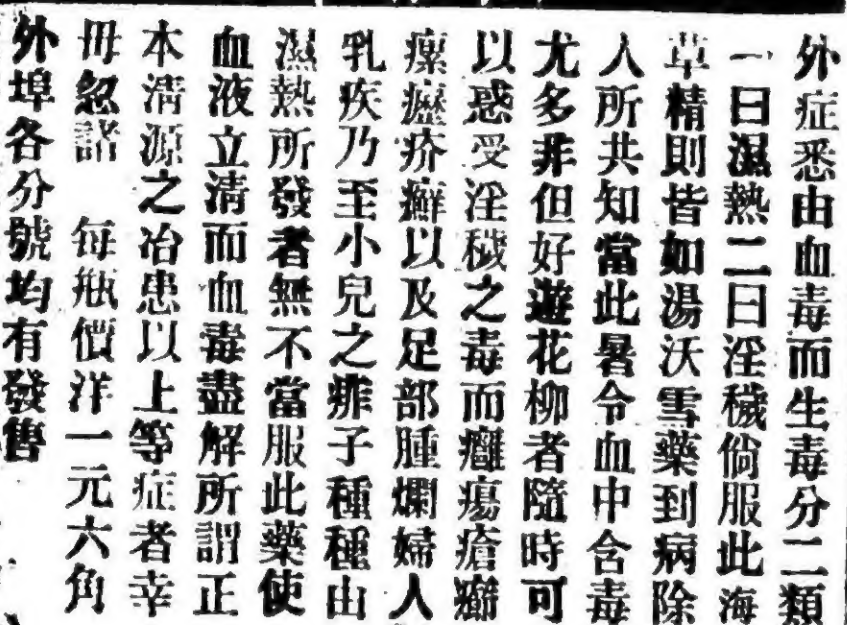 外症悉由血毒而生毒分二類
一曰濕熱二曰淫穢倘服此海
草精則皆如湯沃雪藥到病除
人所共知當此暑令血中含毒
尤多非但好遊花柳者隨時可
以惑受淫穢之毒而癰瘍瘡癤
瘰癧疥癬以及足部腫爛婦人
乳疾乃至小兒之痱子種種由
濕熱所發者無不當服此藥使
血液立清而血毒盡解所謂正
本清源之冶患以上等症者幸
毋忽諸 每瓶價洋一元六角
外埠各分號均有發售